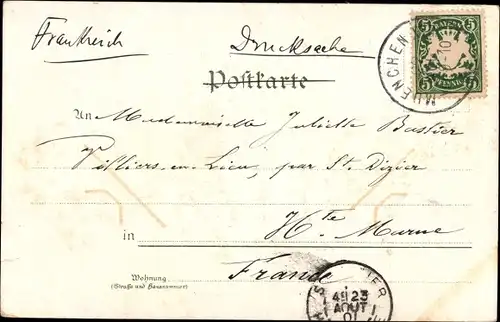 Frankreich
Drucksache
BAYERN
5 5
5 PFENNIG 5
MUENCHEN
Postkarte
An Mademoiselle Juliette Bastier
Villiers-en-Lieu, par St Dizier
in Hte Marne
France
Wohnung
(Straße und Hausnummer)
23
AOUT
01